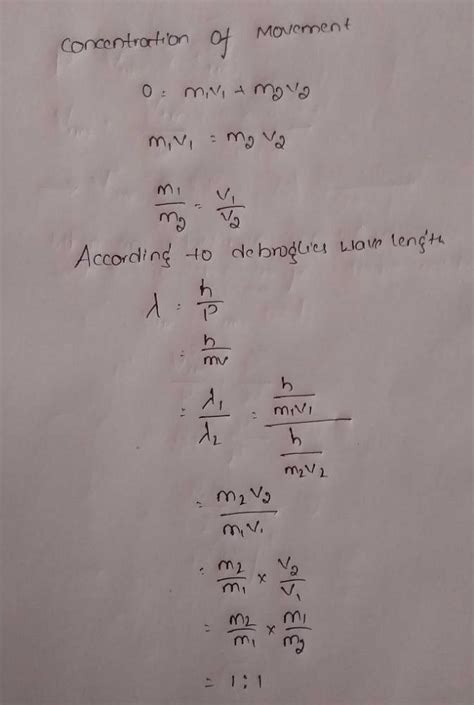 Concentration of Movement
0 = m₁v₁ + m₂v₂
m₁v₁ = m₂v₂
m₁/m₂ = v₁/v₂
According to debroglies wave length
λ = h/p
= h/mv
= λ₁/λ₂ = (h/m₁v₁)/(h/m₂v₂)
= m₂v₂/m₁v₁
= m₂/m₁ × v₂/v₁
= m₂/m₁ × m₁/m₂
= 1:1